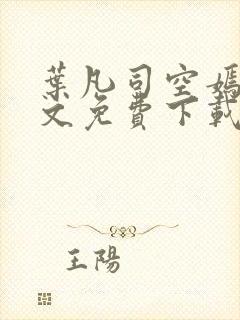 葉凡司空嫣
文免費下載
王陽